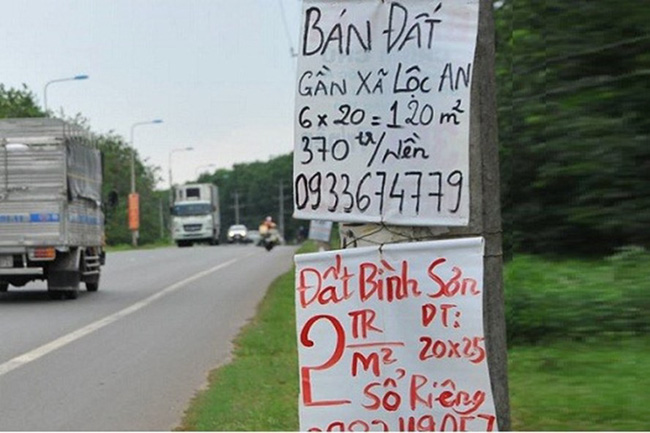 BÁN ĐẤT
GẦN XÃ LỘC AN
6 x 20 = 120 m²
370 tr/Nền
0933674779
Đất Bình Sơn
2 TR/M² DT: 20x25
Sổ Riêng